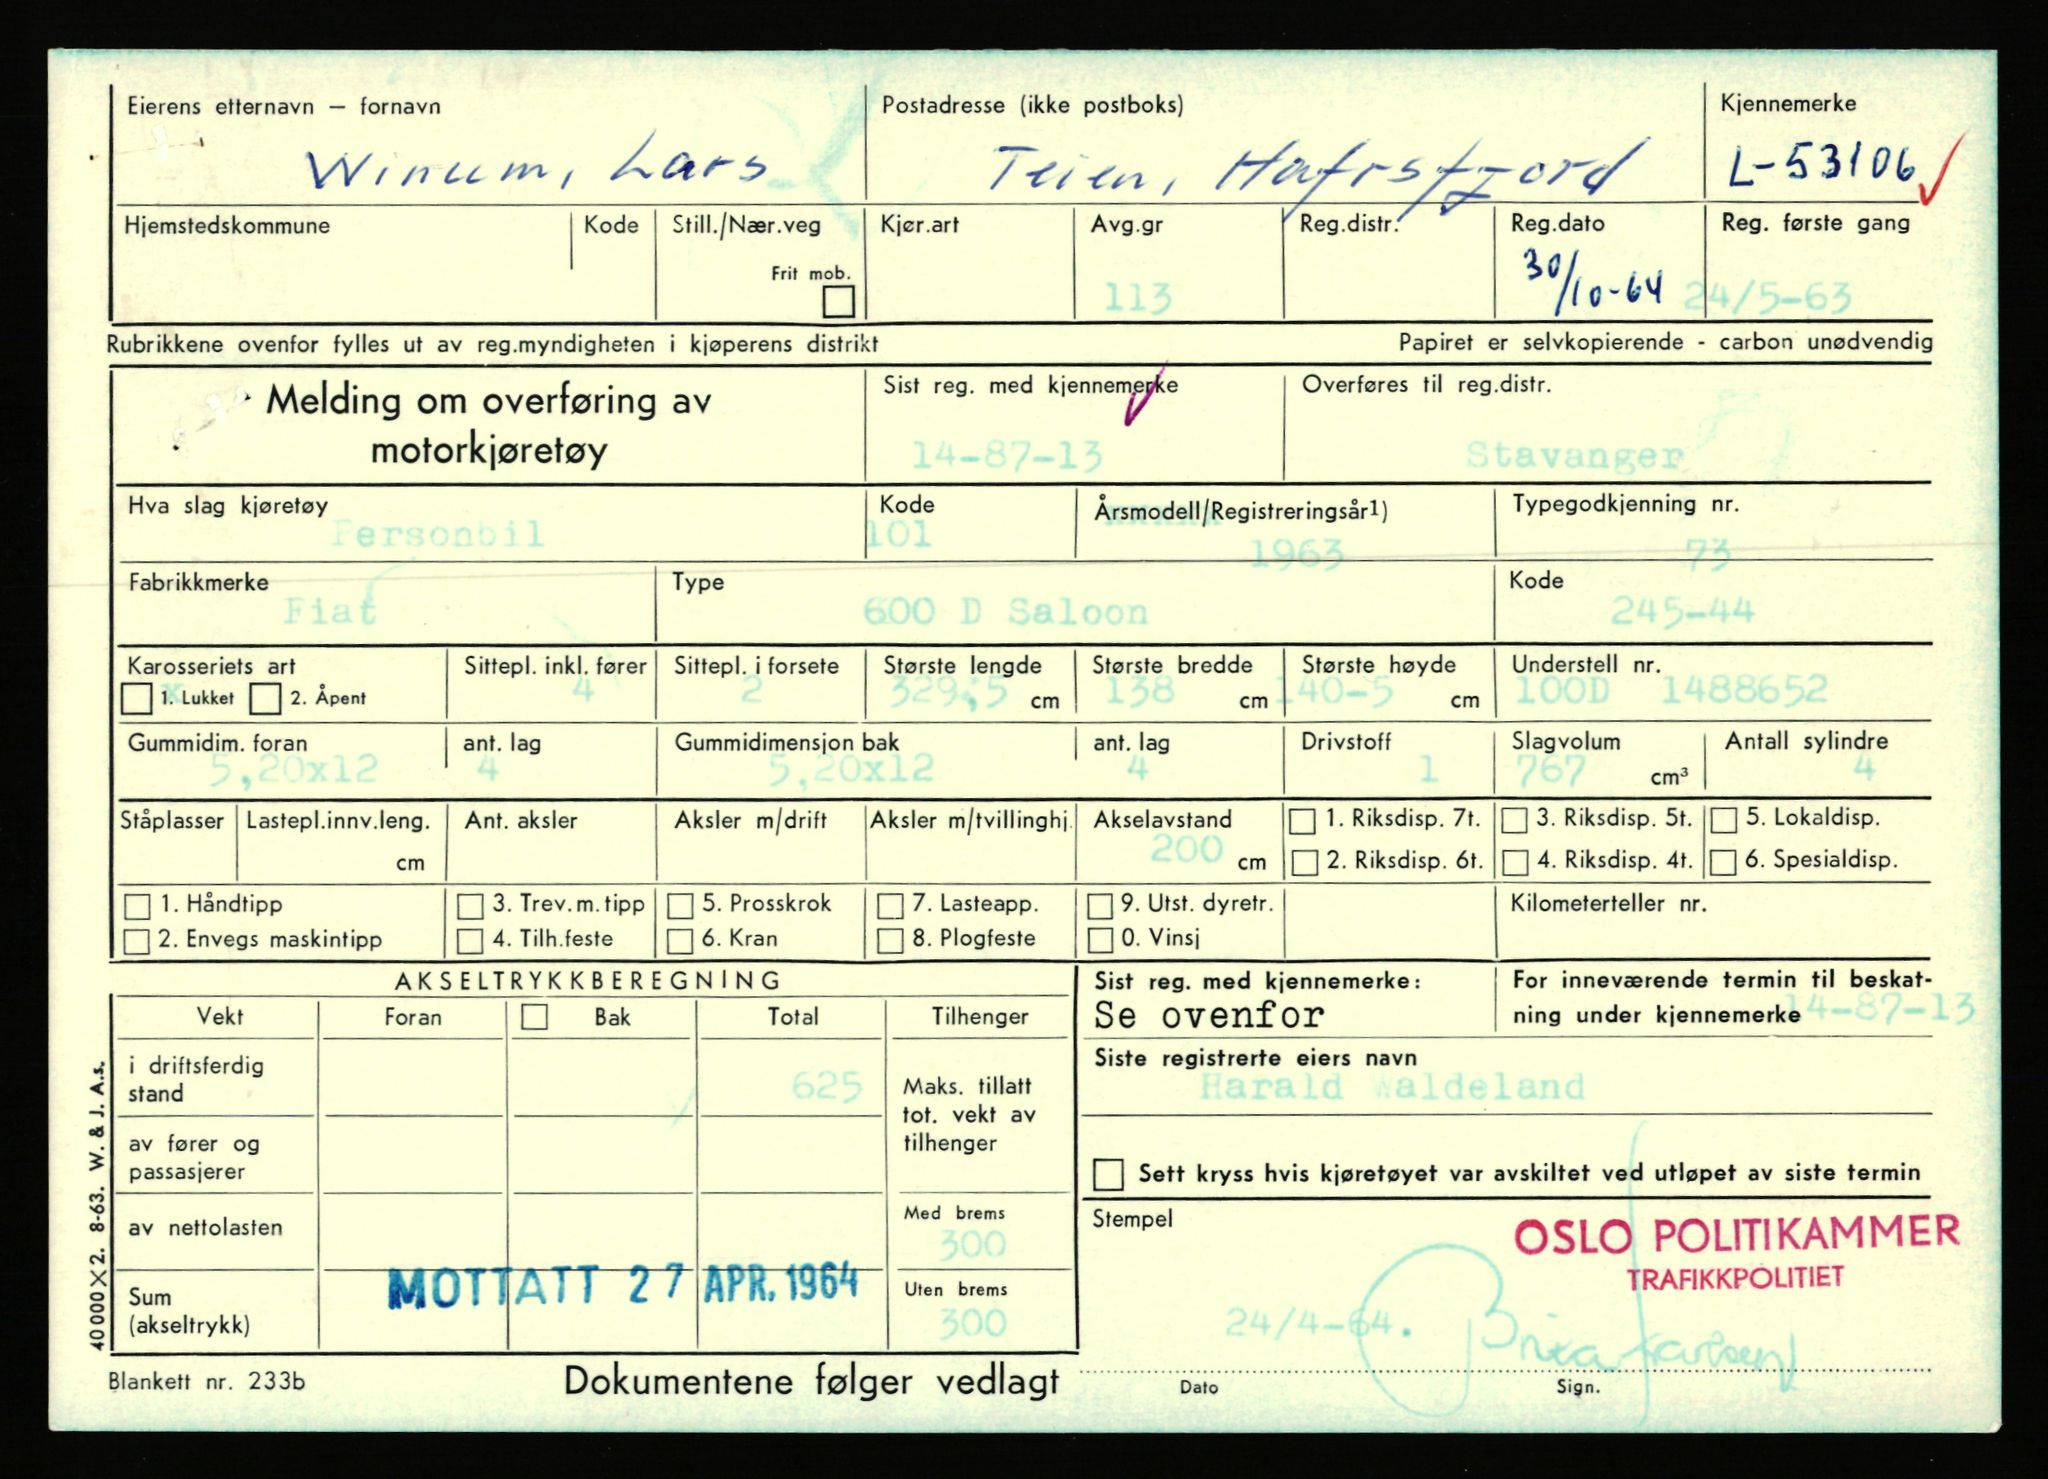 Eierens etternavn – fornavn
Winum, Lars
Postadresse (ikke postboks)
Teien, Hafrsfjord
Kjennemerke
L-53106
Hjemstedskommune
Kode
Still./Nær.veg
Frit mob.
Kjør.art
Avg.gr
113
Reg.distr.
Reg.dato
30/10-64
Reg. første gang
24/5-63
Rubrikkene ovenfor fylles ut av reg.myndigheten i kjøperens distrikt
Papiret er selvkopierende - carbon unødvendig
Melding om overføring av
motorkjøretøy
Sist reg. med kjennemerke
14-87-13
Overføres til reg.distr.
Stavanger
Hva slag kjøretøy
Personbil
Kode
101
Årsmodell/Registreringsår1)
1963
Typegodkjenning nr.
73
Fabrikkmerke
Fiat
Type
600 D Saloon
Kode
245-44
Karosseriets art
x
1. Lukket
2. Åpent
Sittepl. inkl. fører
4
Sittepl. i forsete
2
Største lengde
329,5 cm
Største bredde
138 cm
Største høyde
140-5 cm
Understell nr.
100D 1488652
Gummidim. foran
5,20x12
ant. lag
4
Gummidimensjon bak
5,20x12
ant. lag
4
Drivstoff
1
Slagvolum
767 cm³
Antall sylindre
4
Ståplasser
Lastepl.innv.leng.
cm
Ant. aksler
Aksler m/drift
Aksler m/tvillinghj.
Akselavstand
200 cm
1. Riksdisp. 7t.
2. Riksdisp. 6t.
3. Riksdisp. 5t.
4. Riksdisp. 4t.
5. Lokaldisp.
6. Spesialdisp.
1. Håndtipp
2. Envegs maskintipp
3. Trev. m. tipp
4. Tilh.feste
5. Prosskrok
6. Kran
7. Lasteapp.
8. Plogfeste
9. Utst. dyretr.
0. Vinsj
Kilometerteller nr.
AKSELTRYKKBEREGNING
Vekt
Foran
Bak
Total
Tilhenger
i driftsferdig
stand
625
Maks. tillatt
tot. vekt av
tilhenger
av fører og
passasjerer
av nettolasten
Med brems
300
Sum
(akseltrykk)
MOTTATT 27 APR. 1964
Uten brems
300
Sist reg. med kjennemerke:
Se ovenfor
For inneværende termin til beskat-
ning under kjennemerke 14-87-13
Siste registrerte eiers navn
Harald Waldeland
Sett kryss hvis kjøretøyet var avskiltet ved utløpet av siste termin
Stempel
OSLO POLITIKAMMER
TRAFIKKPOLITIET
24/4-64.
Dato
Sign.
40000 X 2. 8-63. W. & J. A.s.
Blankett nr. 233b
Dokumentene følger vedlagt